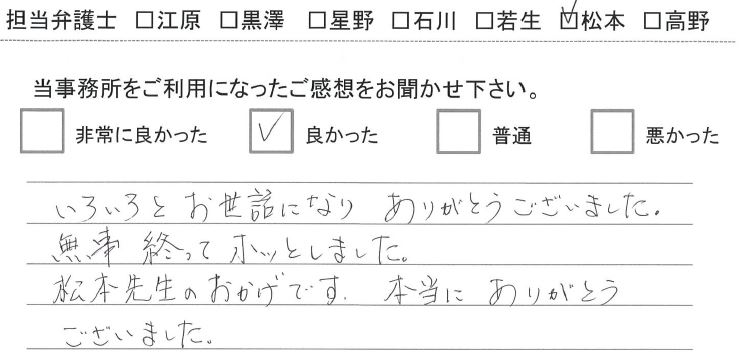 担当弁護士 □江原 □黒澤 □星野 □石川 □若生 ☑松本 □高野
当事務所をご利用になったご感想をお聞かせ下さい。
□ 非常に良かった ☑ 良かった □ 普通 □ 悪かった
いろいろと お世話になり ありがとうございました。
無事 終って ホッとしました。
松本先生のおかげです. 本当に ありがとう
ございました。